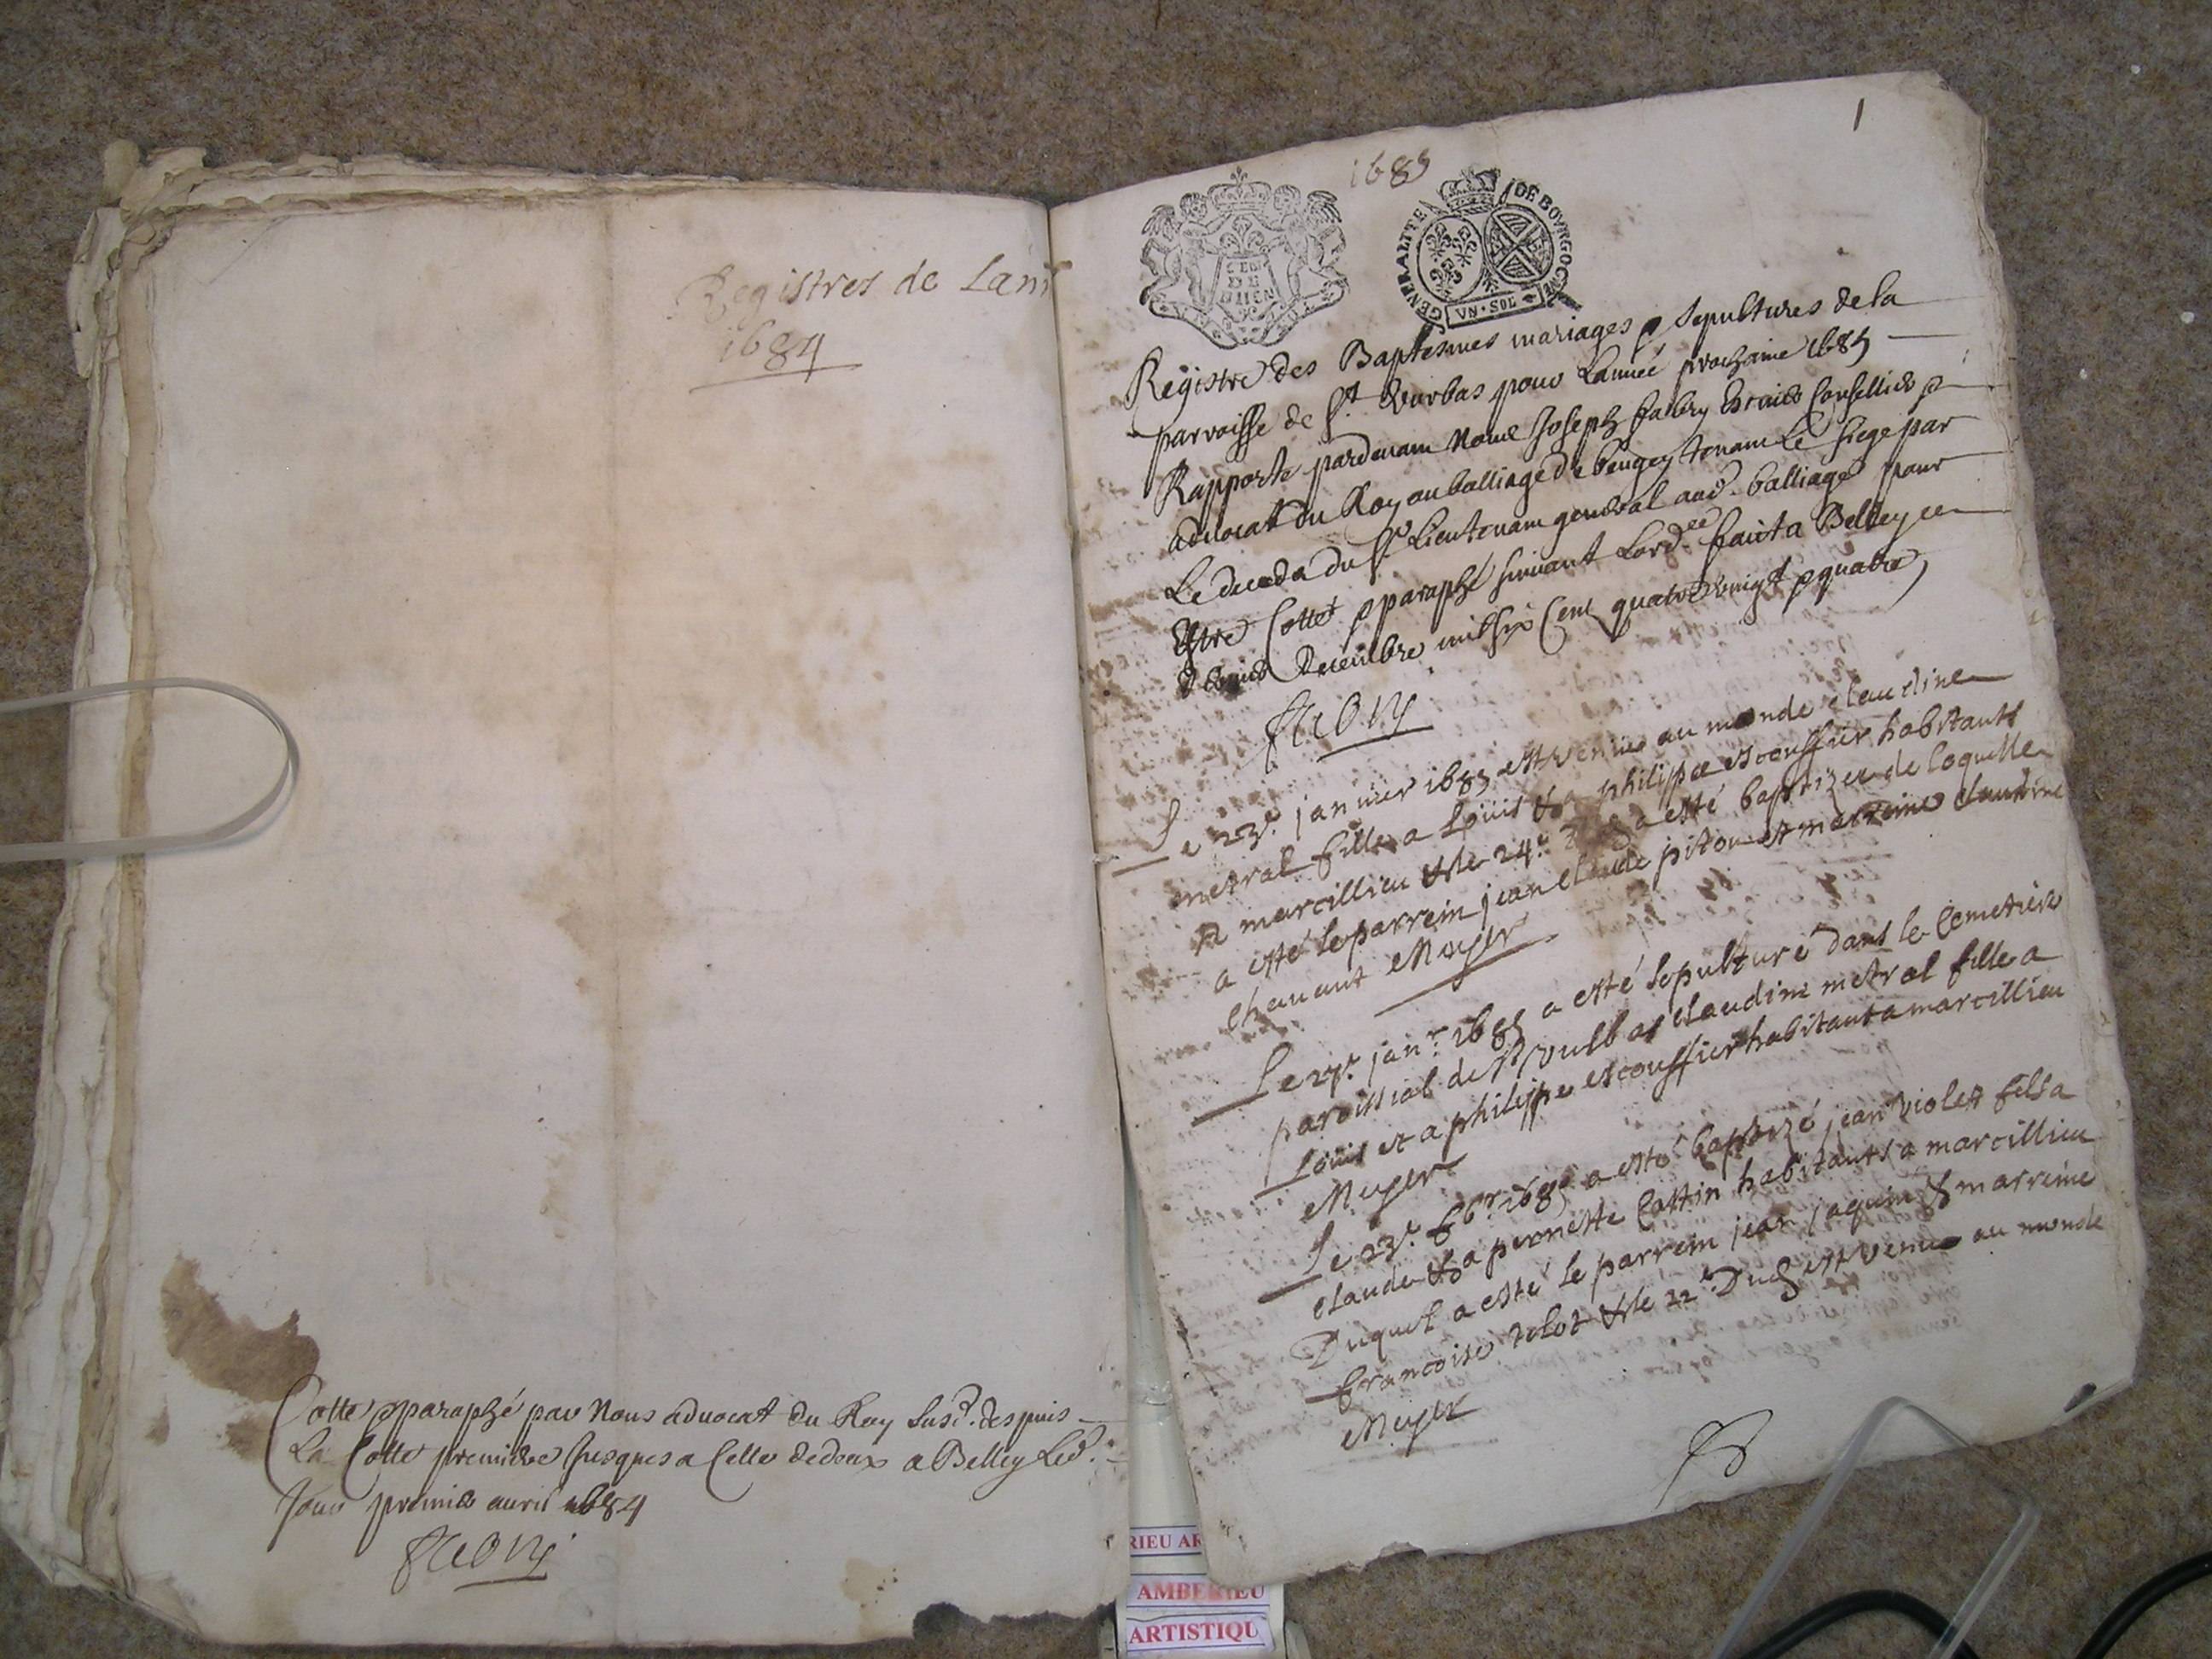 Registres de Lan
1684
Cotte & paraphé par Nous advocat du Roy susd. despuis
La Cotte premiere Jusques a Celle de deux a Belley Led.
Jour premier avril 1684
1
1685
GENERALITE DE BOVRGOGNE
VN·SOL
Registre des Baptesmes mariages & sepultures de la
parroisse de St Vurbas pour Lannée prochaine 1685
Rapporté pardevam Nous Joseph fabry Conseiller &
advocat du Roy au balliage de beugey tenam Le siege par
Le deceds du Sr Lieutenam general aud. balliage pour
Estre Cotté & paraphé suivant Lord.ce faict a Belley ce
Decembre mil six Cent quatre vingt & quatre
Le 23e. janvier 1685 est venue au monde claudine
metral fille a Louis & a philippe escouffier habitants
a marcillieu & le 24e. a esté baptizee de laquelle
a esté le parrein jean claude piton et marreine claudine
chavant Muyer
Le 27e. janr. 1685 a esté sepulturé dans le cemetiere
paroissial de St Vulbas claudine metral fille a
Louis et a philippe escouffier habitant a marcillieu
Muyer
Le 23e. fbr. 1685 a esté baptizé jean violet fils a
claude & a pernette Cottin habitants a marcillieu
Duquel a esté le parrein jean jaquin & marreine
francoise tolot & le 22e. Dud est venu au monde
Muyer
RIEU AR
AMBERIEU
ARTISTIQU